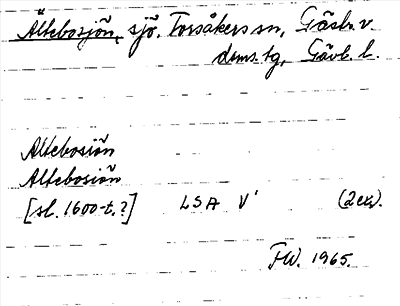 Ältebosjön, sjö. Torsåkers sn, Gästr. v.
doms.tg, Gävb. l.
Altebosiön
Altebosiön
[sl. 1600-t.?] LSA V' (2 ex).
FW. 1965.